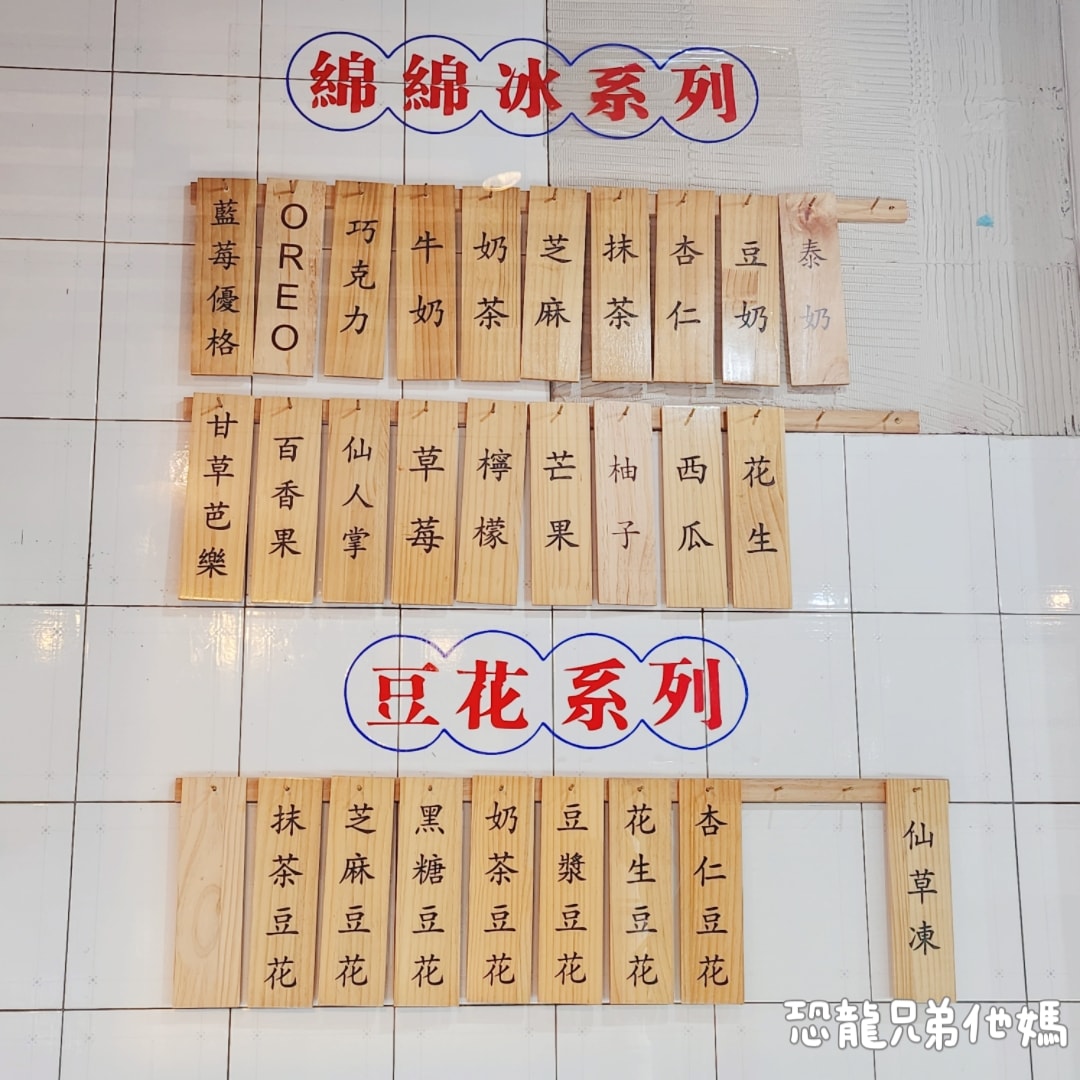 綿綿冰系列
藍莓優格
OREO
巧克力
牛奶
奶茶
芝麻
抹茶
杏仁
豆奶
泰奶
甘草芭樂
百香果
仙人掌
草莓
檸檬
芒果
柚子
西瓜
花生
豆花系列
抹茶豆花
芝麻豆花
黑糖豆花
奶茶豆花
豆漿豆花
花生豆花
杏仁豆花
仙草凍
恐龍兄弟他媽